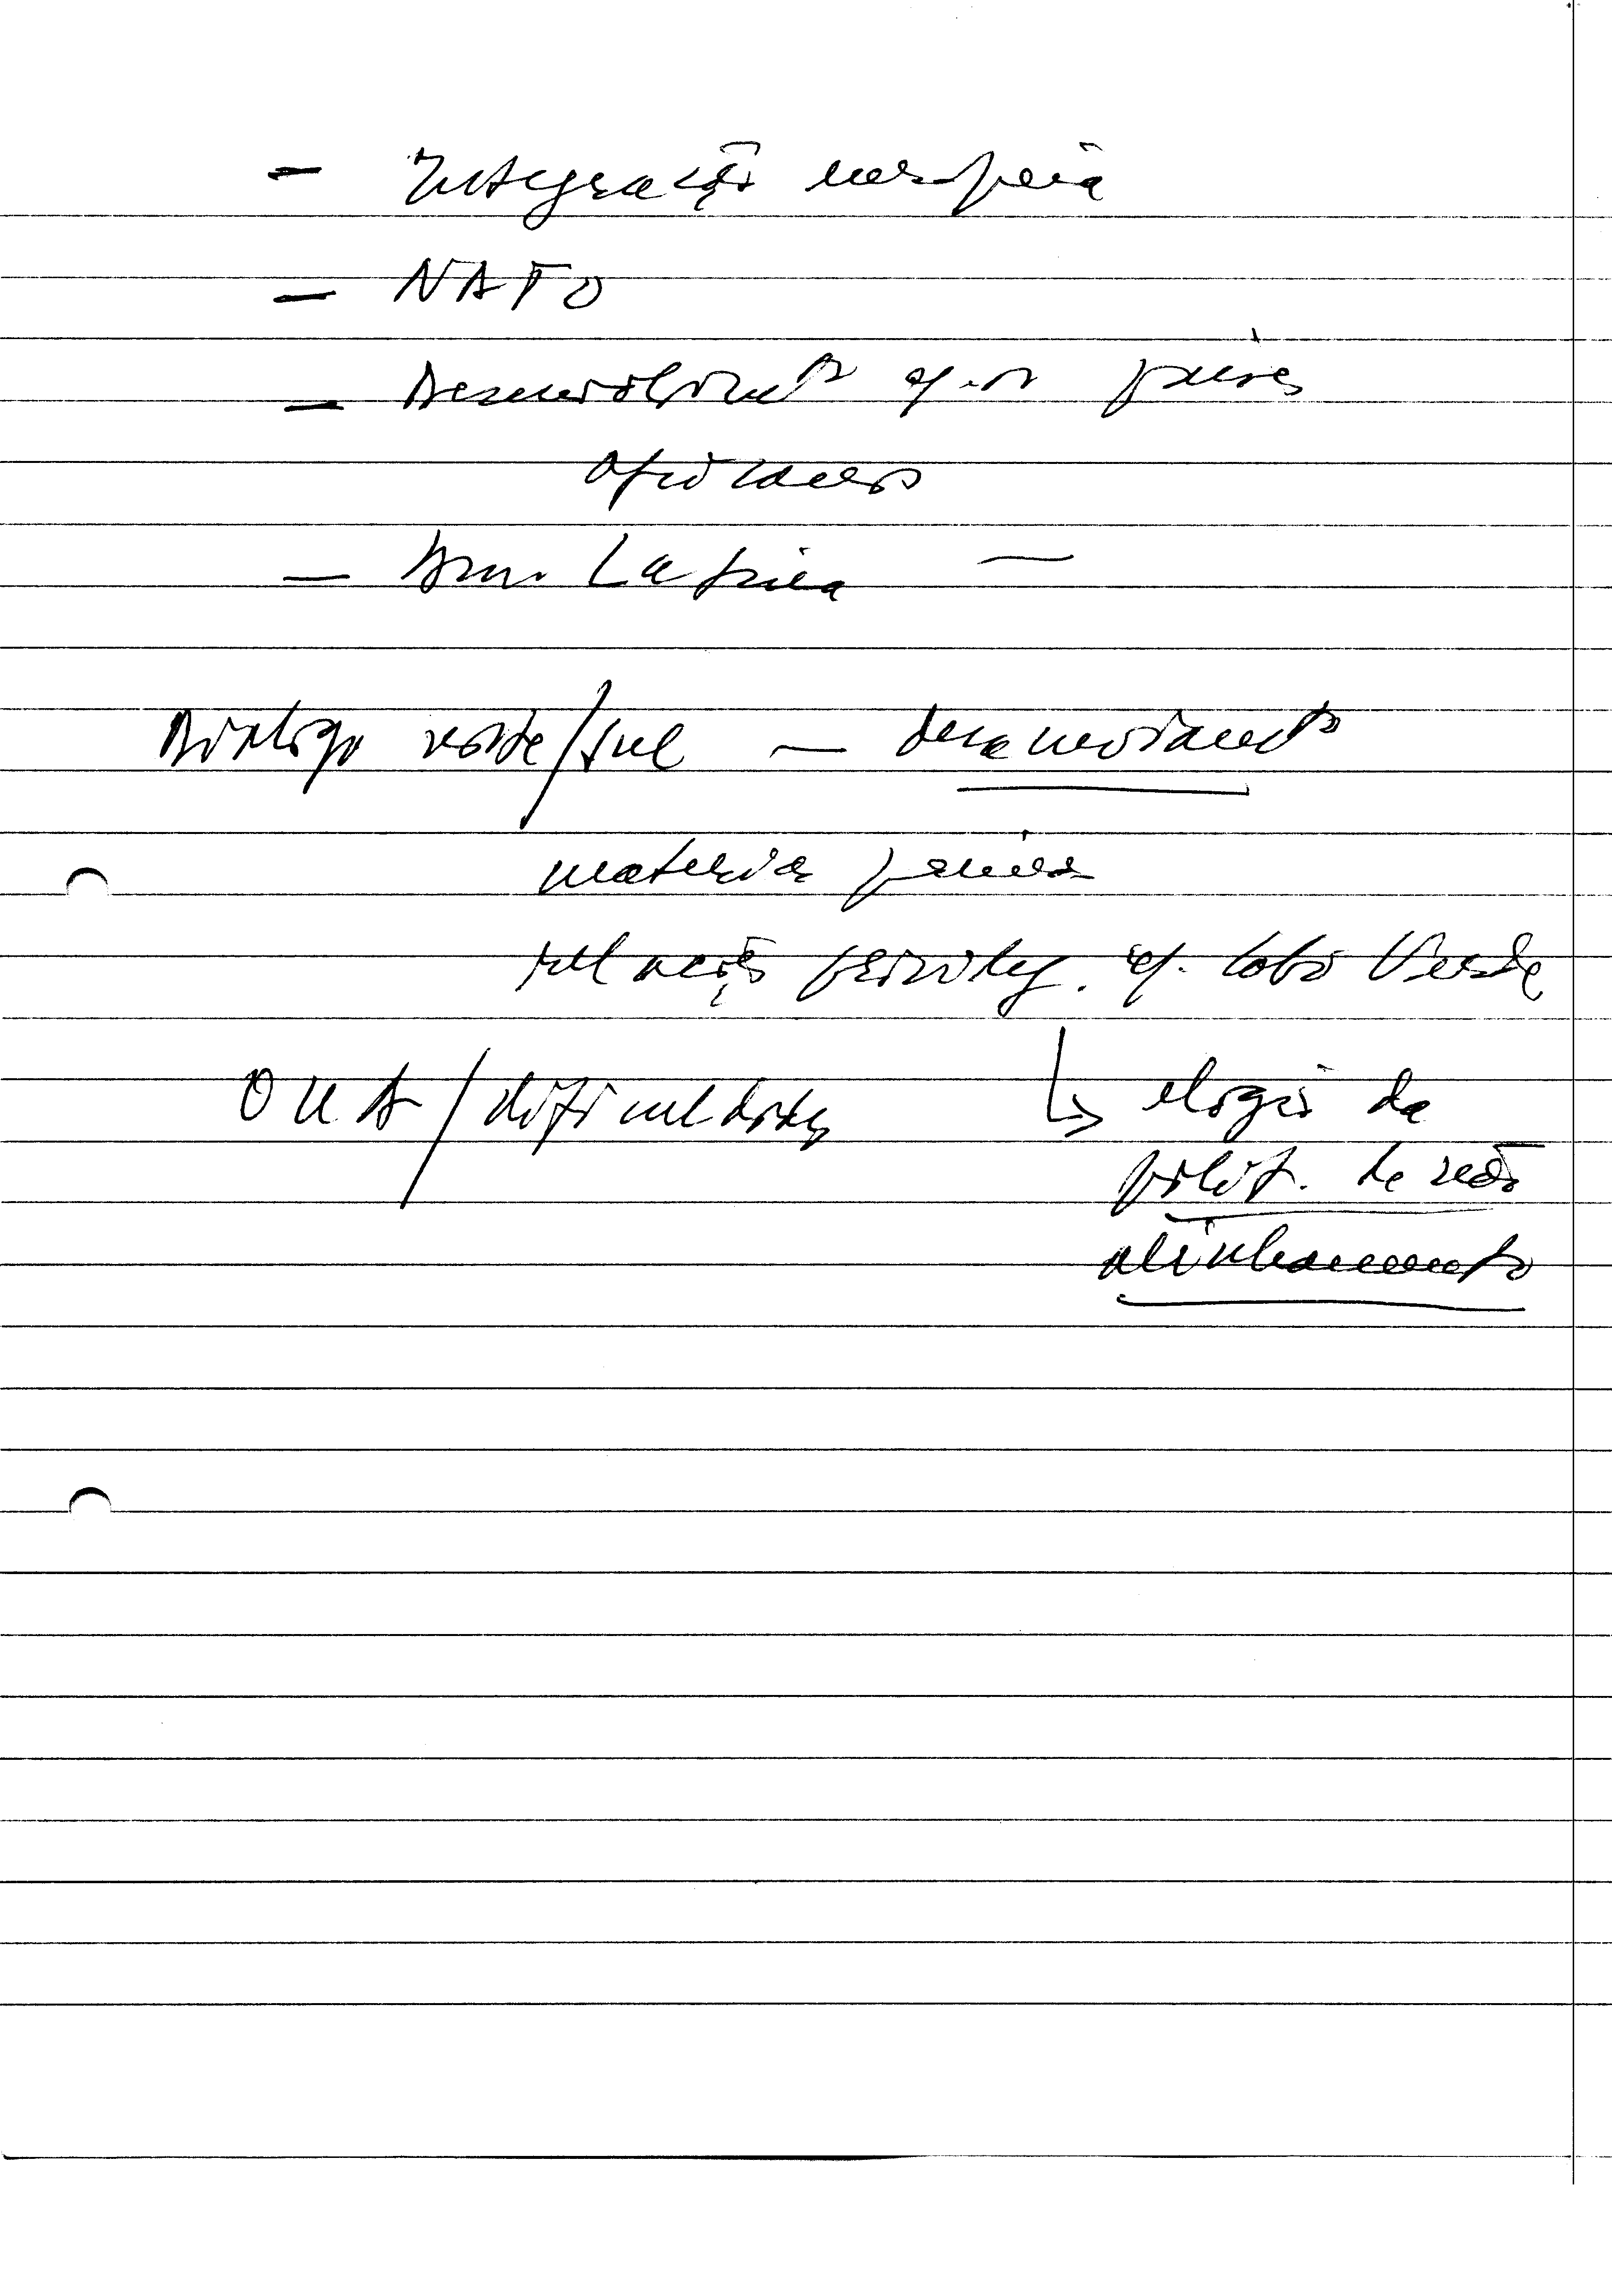 - Integração europeia
- NATO
- Desenvolvimtº c/ os países
africanos
- Am. Latina —
Diálogo norte/sul — desarmamentº
materias primas
relações privileg. c/ Cabo Verde
OUA/dificuldades ↳ elogio da
polít. de não
alinhamento